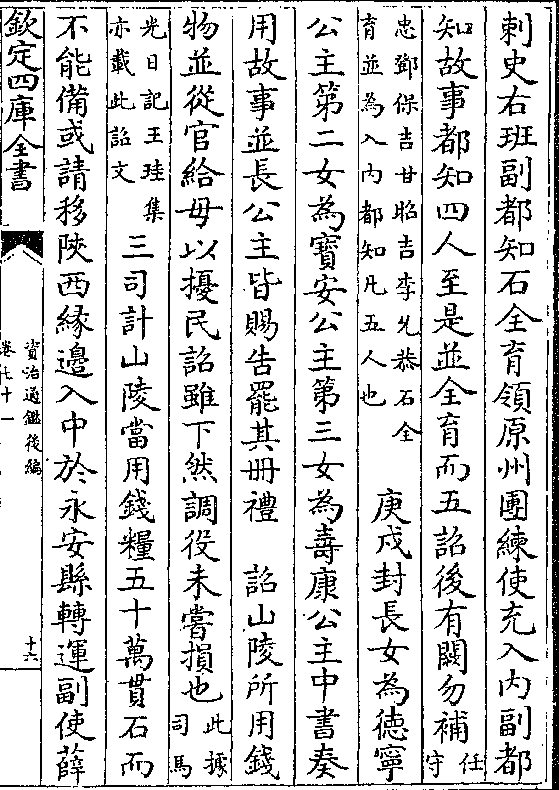 刺史右班副都知石全育領原州團練使充入内副都
知故事都知四人至是並全育而五詔後有闕勿補任守
忠鄧保吉甘昭吉李允恭石全
育並為入内都知凡五人也
庚戌封長女為徳寧
公主第二女為寶安公主第三女為壽康公主中書奏
用故事並長公主皆賜告罷其册禮　詔山陵所用錢
物並從官給毋以擾民詔雖下然調役未嘗損也此據司馬
光日記王珪集
亦載此詔文
三司計山陵當用錢糧五十萬貫石而
不能備或請移陜西縁邉入中於永安縣轉運副使薛
欽定四庫全書
資治通鑑後編
卷七十一
十六